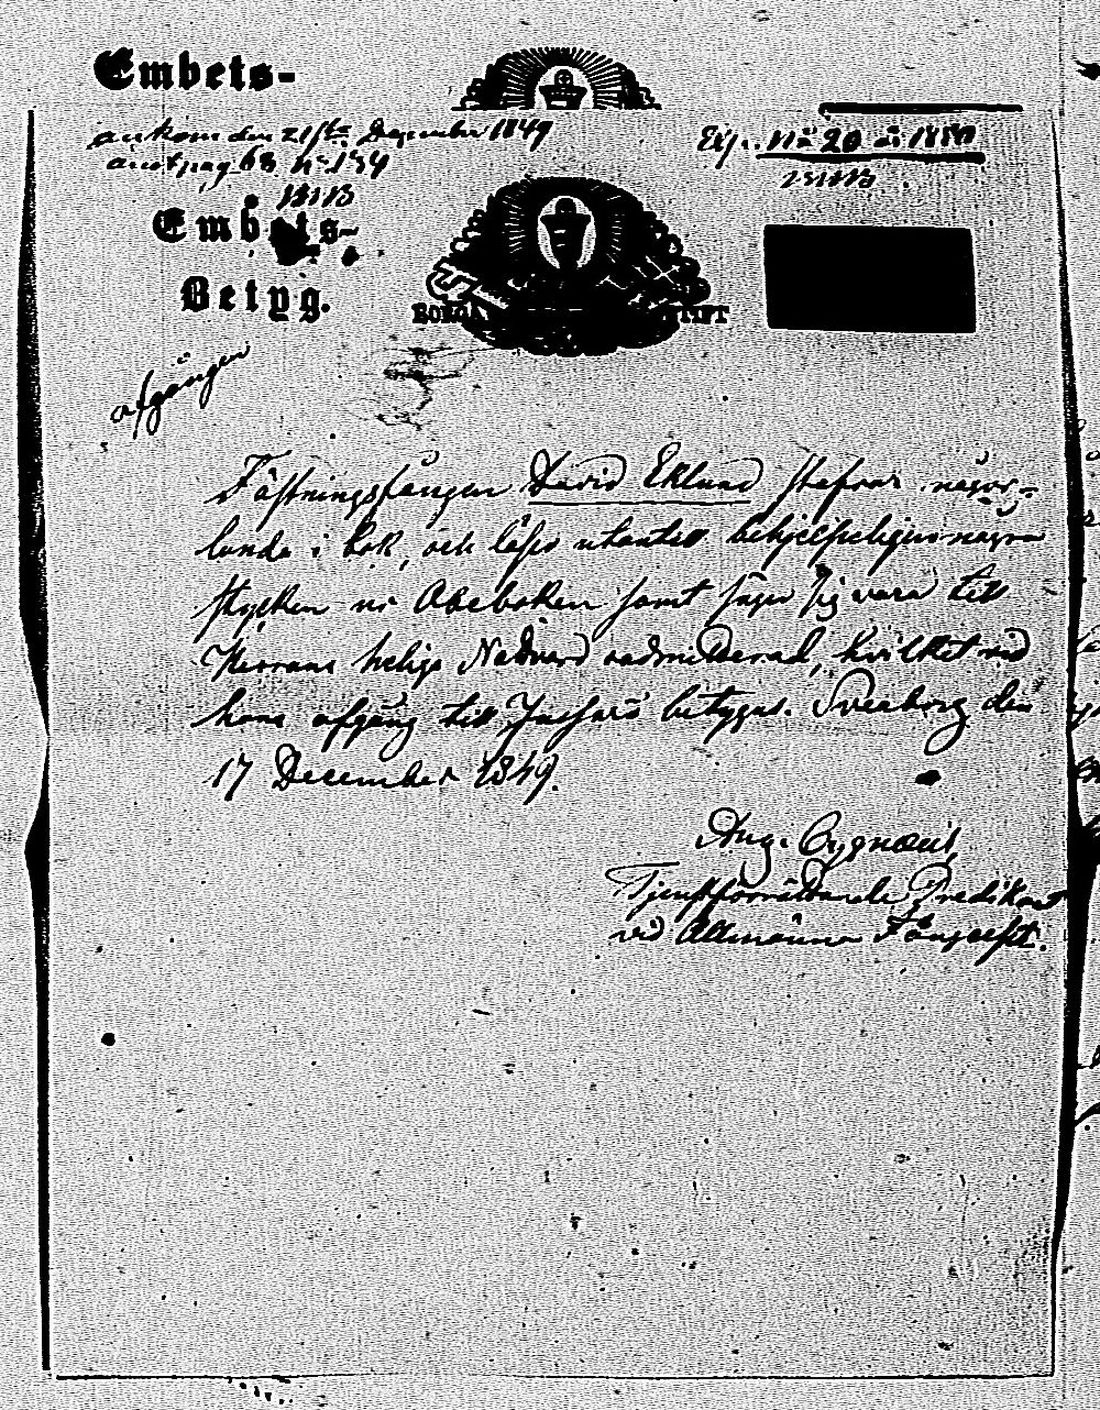 Embets-
ankom den 21sta December 1849
Exp. No 20 år 1850
Embets-
Betyg.
BORGÅ STIFT
afgången
Fästningsfången David Eklund stafvar någor-
lunda i bok, och läser utantill behjelpeligen några
stycken ur Abcboken samt säger sig vara till
Herrans heliga Nattvard admitterad, hvilket vid
hans afgång till betygas. Sveaborg den
17 December 1849.
Aug. Cygnæus
Tjenstförrättande Predikant
vid Allmänna